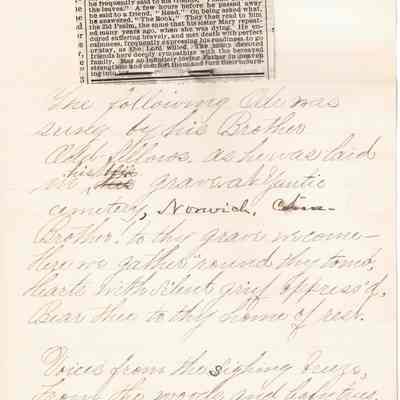 he frequently said to his friends,
the leaves." A few hours before he passed away
he said to a friend, "Read." On being asked what,
he answered, "The Book." They then read to him
the 23d Psalm, the one that his sister Mary repeat-
ed many years ago, when she was dying. He en-
dured suffering bravely, and met death with perfect
calmness, frequently expressing his readiness to go
day, as the Lord willed. The many devoted
friends here deeply sympathize with the bereaved
family. May an infinitely loving Father in heaven
strengthen and comfort them and turn their mourn-
ing into
The following Ode was
sung by his Brother
Odd Fellows, as he was laid
in his grave at Yantic
cemetery, Norwich,
Brother, to thy grave we come—
Here we gather 'round thy tomb,
Hearts with silent grief oppress'd,
Bear thee to thy home of rest.
Voices from the sighing breeze,
From the woods and